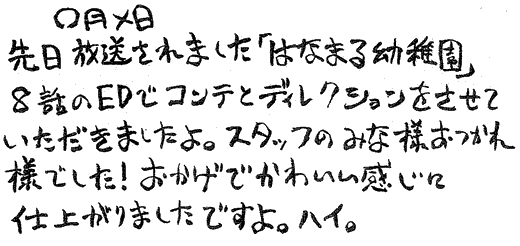 〇月×日
先日放送されました「はなまる幼稚園」
8話のEDでコンテとディレクションをさせて
いただきましたよ。スタッフのみな様おつかれ
様でした！おかげでかわいい感じに
仕上がりましたですよ。ハイ。